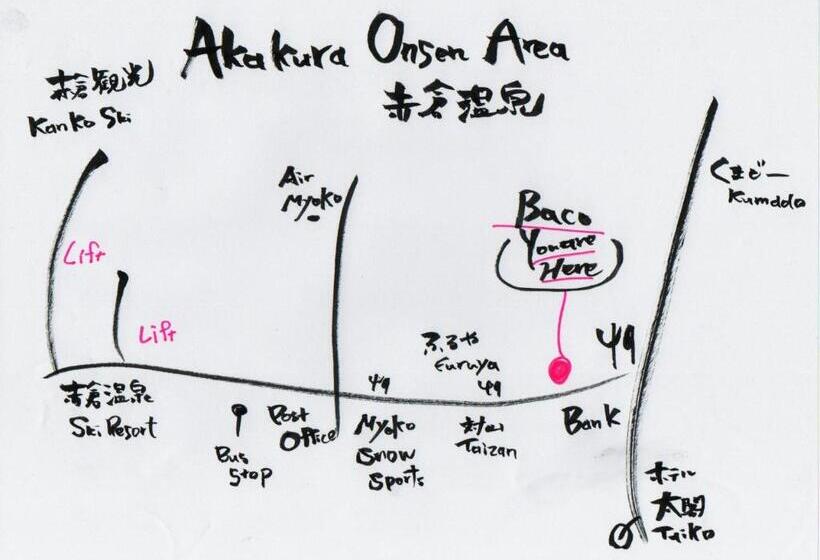 Akakura Onsen Area
赤倉温泉
赤倉観光
Kanko Ski
Air
Myoko
Baco
You are
Here
くまどー
Kumado
Lift
Lift
ふるや
Furuya
赤倉温泉
Ski Resort
Bus
Stop
Post
Office
Myoko
Snow
Sports
対山
Taizan
Bank
ホテル
太閤
Taiko